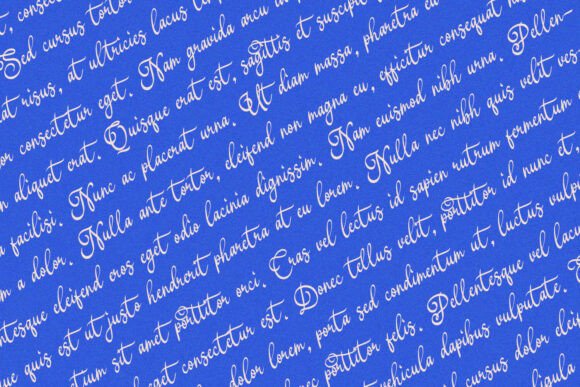 Sed cursus tortor
at risus, at ultricies lacus
consectetur eget. Nam gravida arcu
aliquet erat. Quisque erat est, sagittis et suscipit
facilisi. Nunc ac placerat urna. Ut diam massa, pharetra eu
a dolor. Nulla ante tortor, eleifend non magna eu, efficitur consequat
eleifend eros eget odio lacinia dignissim. Nam euismod nibh urna. Pellen-
que quis est ut justo hendrerit pharetra at eu lorem. Nulla nec nibh quis velit ves
sit amet porttitor orci. Cras vel lectus id sapien rutrum fermentum
consectetur est. Donec tellus velit, porttitor id nunc et,
dolor lorem, porta sed condimentum ut, luctus
nec porttitor felis. Pellentesque vel
vehicula dapibus vulputate.
cursus dolor
ligula